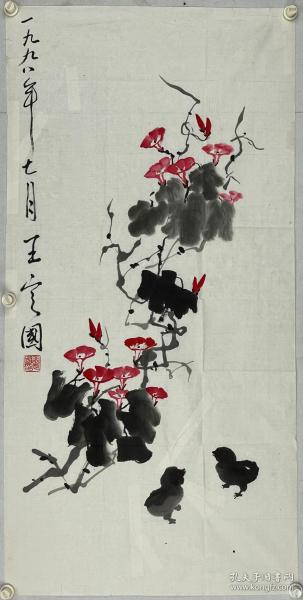 一九九八年七月王定國
孔夫子旧书网